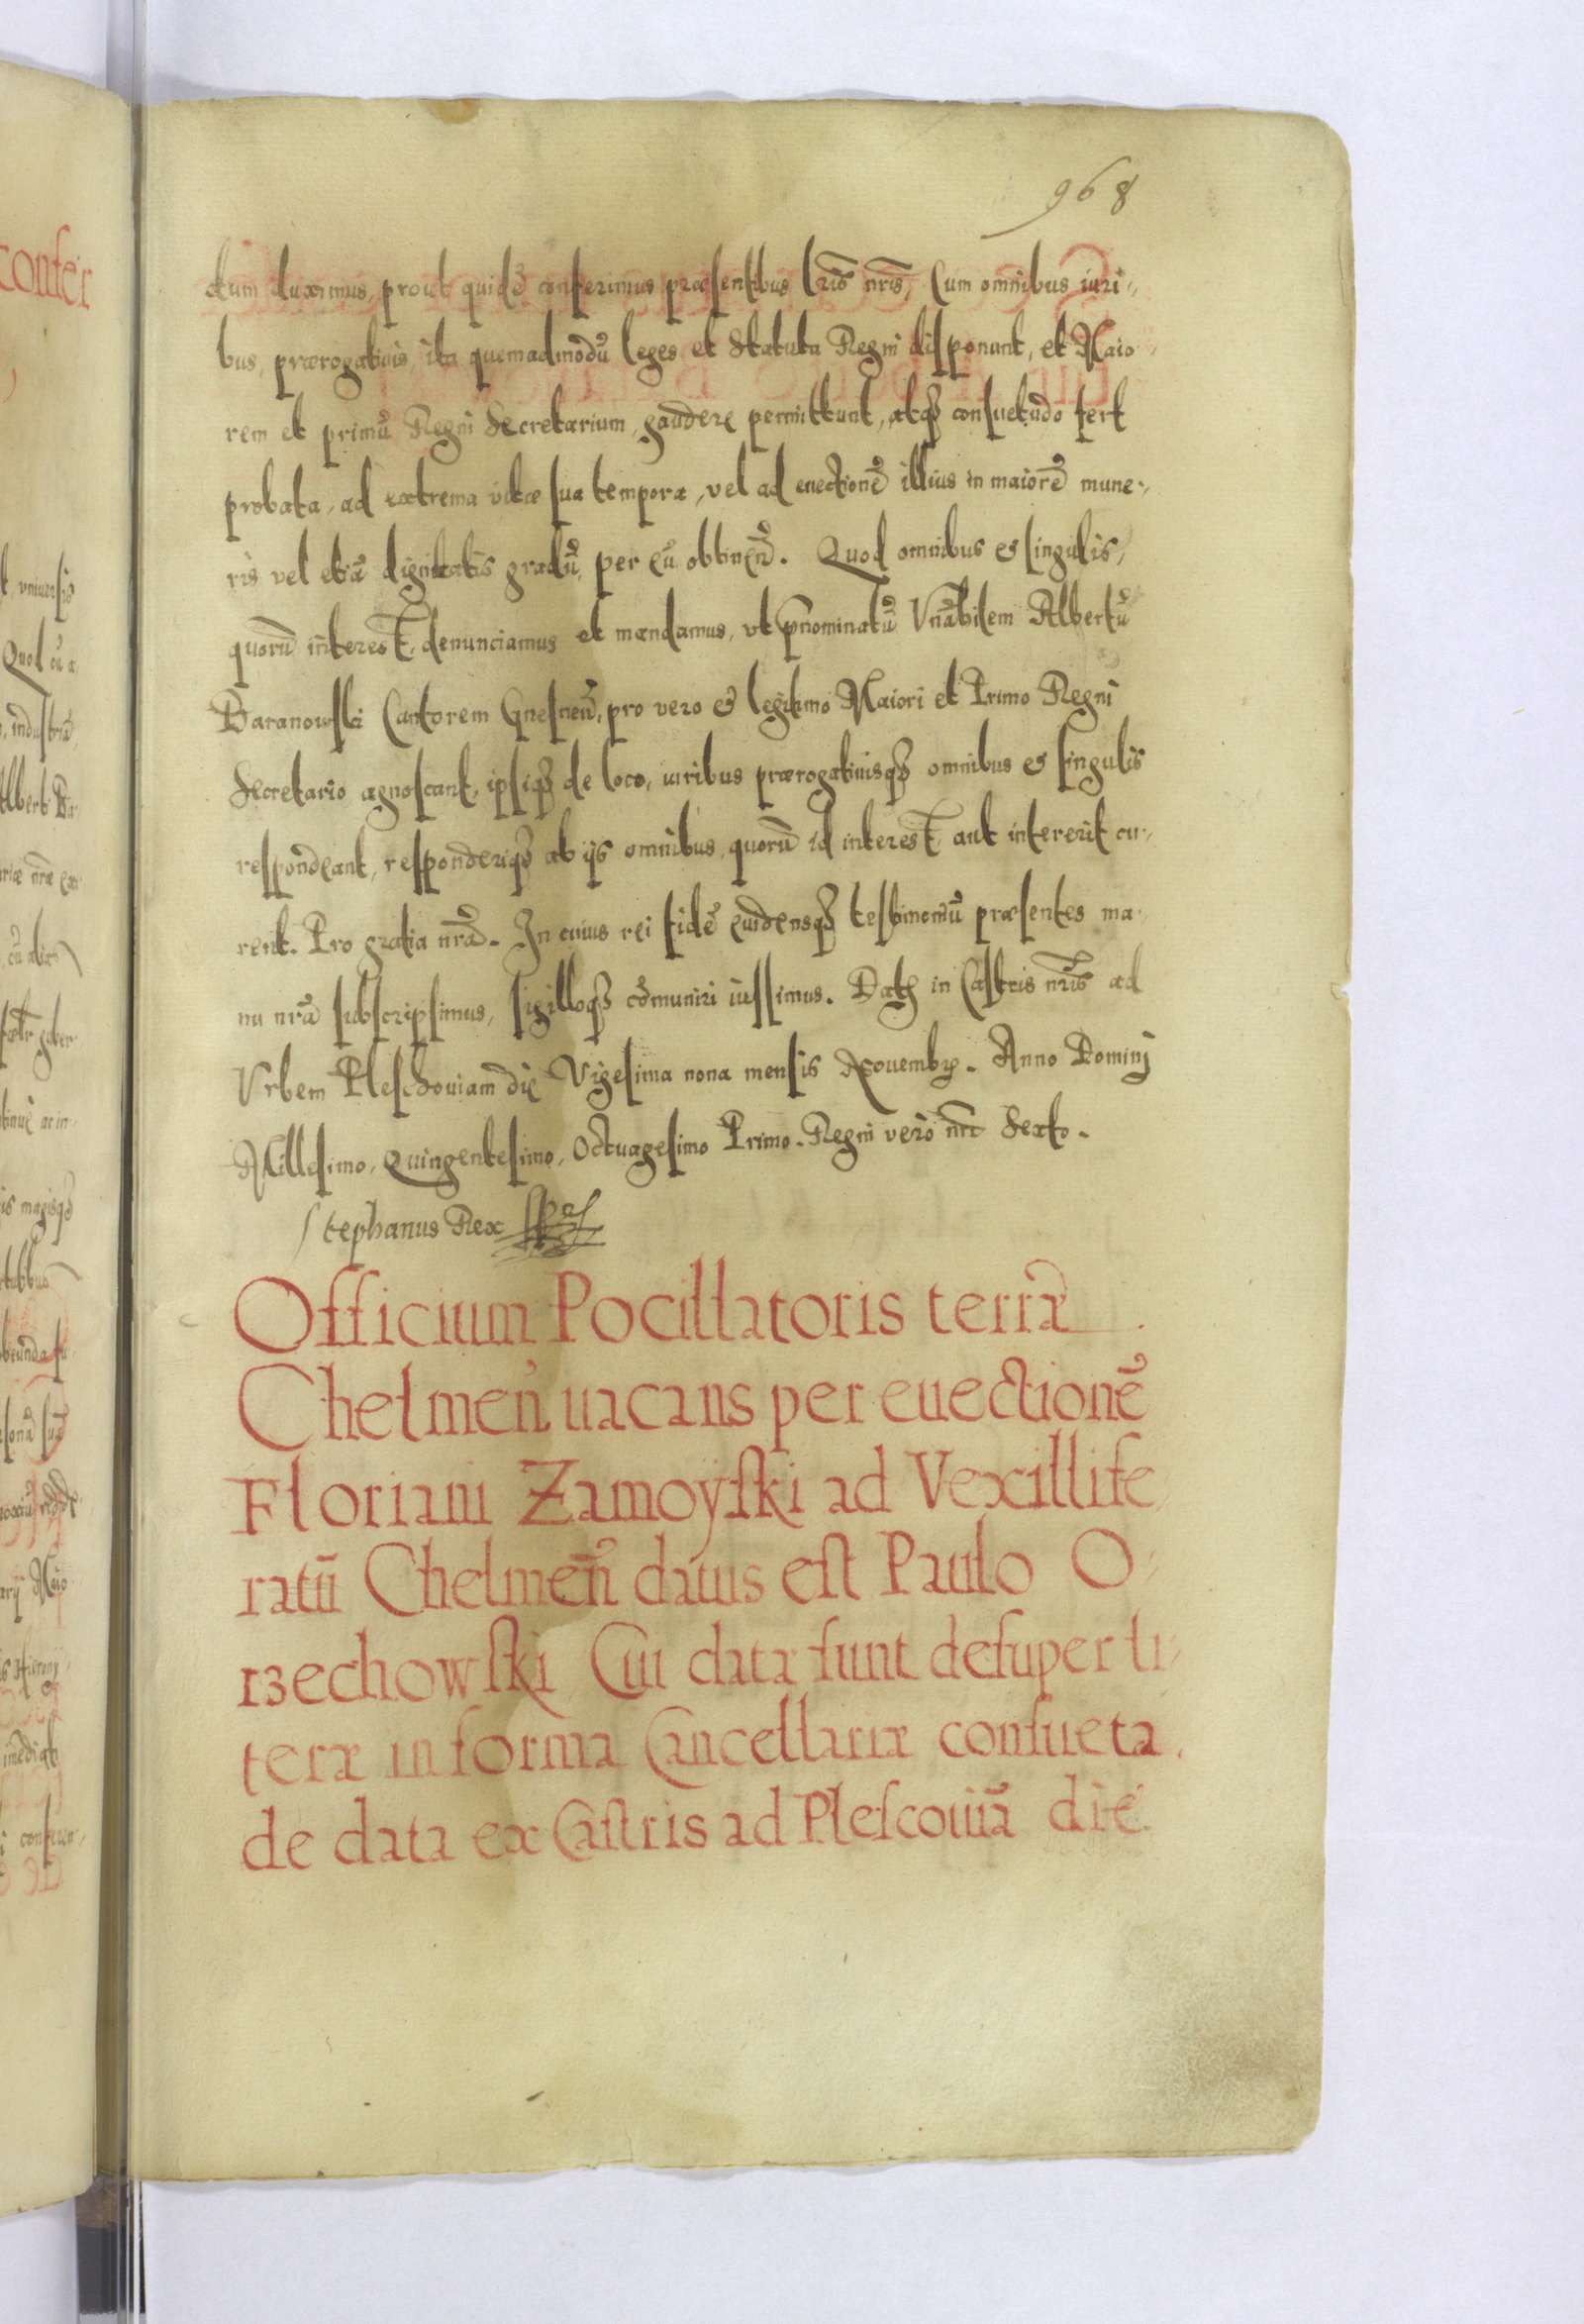 968
dum duximus, prout quidē conferimus præsentibus lris nris, Cum omnibus iuri-
bus, prærogativis, ita quemadmodū leges et Statuta Regni disponunt, et Maio-
rem et primū Regni Secretarium, gaudere permittunt, atq3 consuetudo fert
probata, ad extrema vitæ suæ tempora, vel ad euectionē illius in maiorē mune-
ris vel etiā dignitatis gradū, per eū obtinen̄. Quod omnibus et singulis,
quorū interest, denunciamus et mandamus, vt pnominatū Vnābilem Albertū
Baranowski Cantorem Gnesnen̄, pro vero et legitimo Maiori et Primo Regni
Secretario agnoscant, ipsiq3 de loco, iuribus prærogatiuisq3 omnibus et singulis
respondeant, responderiq3 ab ijs omnibus, quorū id interest, aut intererit cu-
rent. Pro gratia nrā. In cuius rei fidē euidensq3 testimoniū præsentes ma-
nu nrā subscripsimus, sigilloq3 cōmuniri iussimus. Dat in Castris nris ad
Vrbem Pleschouiam die Vigesima nona mensis Nouembr. Anno Dominj
Millesimo, Quingentesimo, Octuagesimo Primo. Regni verò nri Sexto.
Stephanus Rex
Officium Pocillatoris terræ
Chelmen̄ uacans per euectionē
Floriani Zamoyski ad Vexillife
ratū Chelmen̄ datus est Paulo O-
rzechowski Cui data sunt desuper li-
teræ in forma Cancellariæ consueta.
de data ex Castris ad Plescouiā die